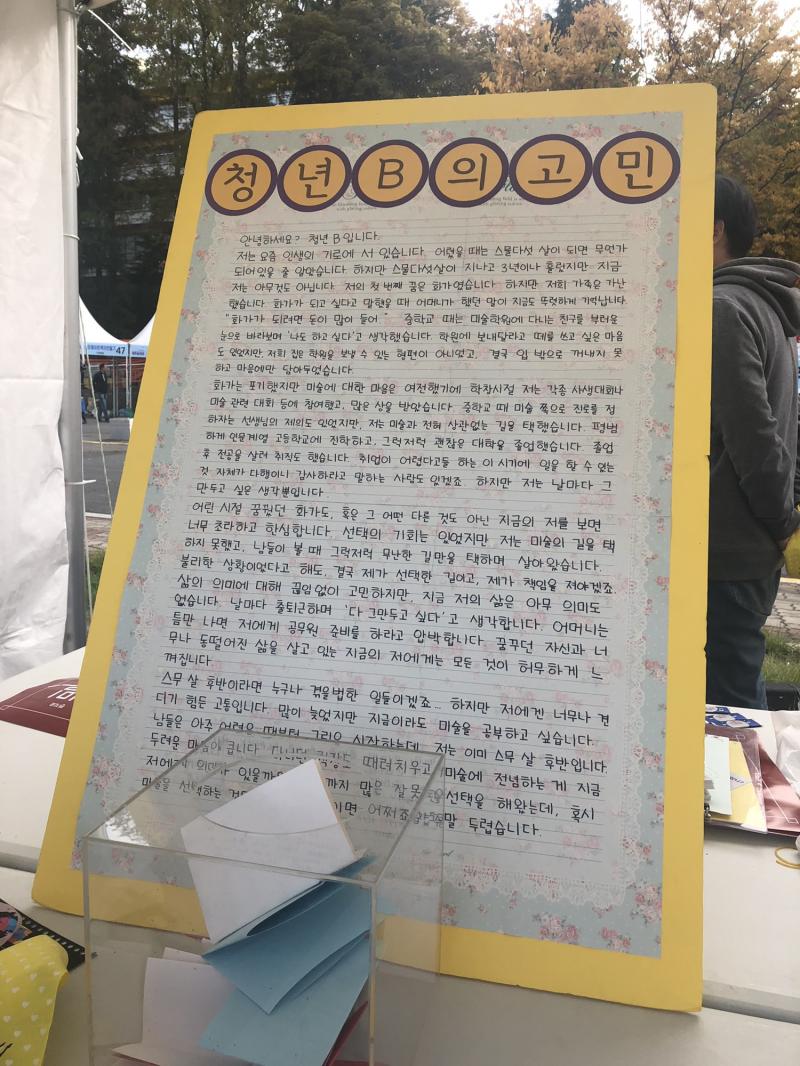 청년B의고민
안녕하세요? 청년 B입니다.
저는 요즘 인생의 기로에 서 있습니다. 어렸을 때는 스물다섯 살이 되면 무언가
되어있을 줄 알았습니다. 하지만 스물다섯살이 지나고 3년이나 흘렀지만 지금
저는 아무것도 아닙니다. 저의 첫 번째 꿈은 화가였습니다. 하지만 저희 가족은 가난
했습니다. 화가가 되고 싶다고 말했을 때 어머니가 했던 말이 지금도 뚜렷하게 기억납니다.
"화가가 되려면 돈이 많이 들어." 중학교 때는 미술학원에 다니는 친구를 부러운
눈으로 바라보며 '나도 하고 싶다'고 생각했습니다. 학원에 보내달라고 떼를 쓰고 싶은 마음
도 있었지만, 저희 집은 학원을 보낼 수 있는 형편이 아니었고, 결국 입 밖으로 꺼내지 못
하고 마음에만 담아두었습니다.
화가는 포기했지만 미술에 대한 마음은 여전했기에 학창시절 저는 각종 사생대회나
미술 관련 대회 등에 참여했고, 많은 상을 받았습니다. 중학교 때 미술 쪽으로 진로를 정
하자는 선생님의 제의도 있었지만, 저는 미술과 전혀 상관없는 길을 택했습니다. 평범
하게 인문계열 고등학교에 진학하고, 그럭저럭 괜찮은 대학을 졸업했습니다. 졸업
후 전공을 살려 취직도 했습니다. 취업이 어렵다고들 하는 이 시기에 일을 할 수 있는
것 자체가 다행이니 감사하라고 말하는 사람도 있겠죠. 하지만 저는 날마다 그
만두고 싶은 생각뿐입니다.
어린 시절 꿈꿨던 화가도, 혹은 그 어떤 다른 것도 아닌 지금의 저를 보면
너무 초라하고 한심합니다. 선택의 기회는 있었지만 저는 미술의 길을 택
하지 못했고, 남들이 볼 때 그럭저럭 무난한 길만을 택하며 살아왔습니다.
불리한 상황이었다고 해도, 결국 제가 선택한 길이고, 제가 책임을 져야겠죠.
삶의 의미에 대해 끊임없이 고민하지만, 지금 저의 삶은 아무 의미도
없습니다. 날마다 출퇴근하며 '다 그만두고 싶다'고 생각합니다. 어머니는
틈만 나면 저에게 공무원 준비를 하라고 압박합니다. 꿈꾸던 자신과 너
무나 동떨어진 삶을 살고 있는 지금의 저에게는 모든 것이 허무하게 느
껴집니다.
스무 살 후반이라면 누구나 겪을법한 일들이겠죠... 하지만 저에겐 너무나 견
디기 힘든 고통입니다. 많이 늦었지만 지금이라도 미술을 공부하고 싶습니다.
남들은 아주 어렸을 때부터 그림을 시작하는데, 저는 이미 스무 살 후반입니다.
두려운 마음이 큽니다. 다니던 직장도 때려치우고 미술에 전념하는 게 지금
저에게 있을까 까지 많은 잘못된 선택을 해왔는데, 혹시
미술을 선택하는 이면 어쩌죠 정말 두렵습니다.
47